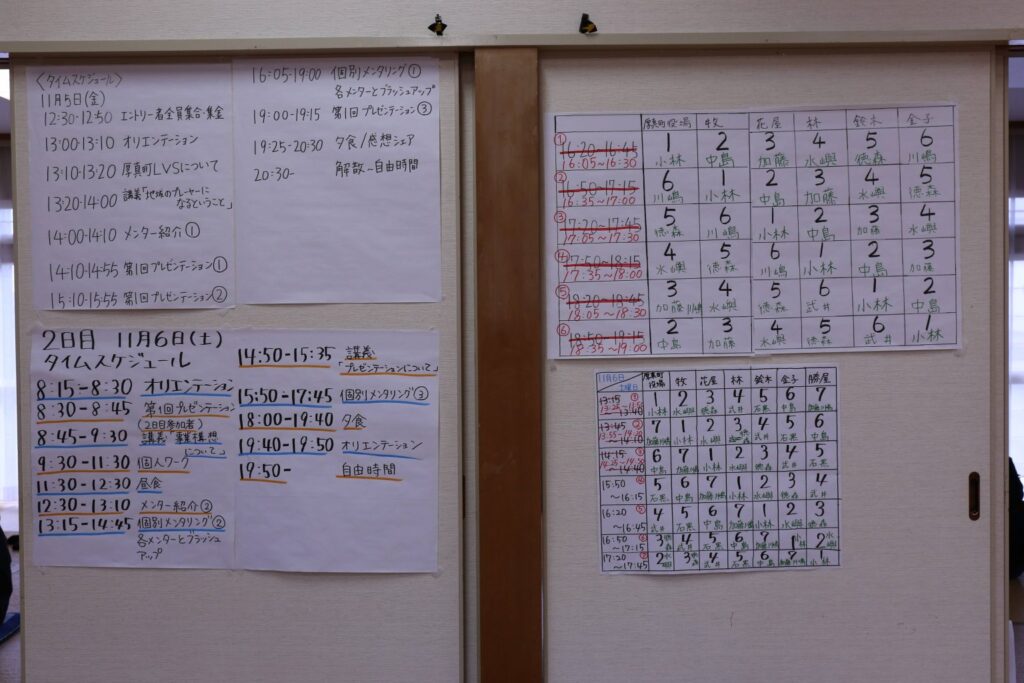 〈タイムスケジュール〉
11月5日(金)
12:30-12:50 エントリー者全員集合・集金
13:00-13:10 オリエンテーション
13:10-13:20 厚真町LVSについて
13:20-14:00 講義「地域のプレーヤーに
なるということ」
14:00-14:10 メンター紹介①
14:10-14:55 第1回プレゼンテーション①
15:10-15:55 第1回プレゼンテーション②
16:05-19:00 個別メンタリング①
各メンターとブラッシュアップ
19:00-19:15 第1回プレゼンテーション③
19:25-20:30 夕食/感想シェア
20:30- 解散~自由時間
2日目 11月6日(土)
タイムスケジュール
8:15-8:30 オリエンテーション
8:30-8:45 第1回プレゼンテーション
(2日目参加者)
8:45-9:30 講義「事業構想
について」
9:30-11:30 個人ワーク
11:30-12:30 昼食
12:30-13:10 メンター紹介②
13:15-14:45 個別メンタリング②
各メンターとブラッシュ
アップ
14:50-15:35 講義
「プレゼンテーションについて」
15:50-17:45 個別メンタリング③
18:00-19:40 夕食
19:40-19:50 オリエンテーション
19:50- 自由時間
厚真町役場 牧 花屋 林 鈴木 金子
① 16:20~16:45 1 2 3 4 5 6
16:05~16:30 小林 中島 加藤 水嶼 徳森 川嶋
② 16:50~17:15 6 1 2 3 4 5
16:35~17:00 川嶋 小林 中島 加藤 水嶼 徳森
③ 17:20~17:45 5 6 1 2 3 4
17:05~17:30 徳森 川嶋 小林 中島 加藤 水嶼
④ 17:50~18:15 4 5 6 1 2 3
17:35~18:00 水嶼 徳森 川嶋 小林 中島 加藤
⑤ 18:20~18:45 3 4 5 6 1 2
18:05~18:30 加藤 水嶼 徳森 武井 小林 中島
⑥ 18:50~19:15 2 3 4 5 6 1
18:35~19:00 中島 加藤 水嶼 徳森 武井 小林
11月6日 土曜日 厚真町役場 牧 花屋 林 鈴木 金子 勝屋
13:15 ① 1 2 3 4 5 6 7
~13:40 小林 水嶼 徳森 武井 石黒 中島
13:45 ② 7 1 2 3 4 5 6
~14:10 小林 水嶼 武井 石黒 中島
14:15 ③ 6 7 1 2 3 4 5
~14:40 中島 小林 水嶼 徳森 武井 石黒
15:50 ④ 5 6 7 1 2 3 4
~16:15 石黒 中島 小林 水嶼 徳森 武井
16:20 ⑤ 4 5 6 7 1 2 3
~16:45 武井 石黒 中島 小林 水嶼 徳森
16:50 ⑥ 3 4 5 6 7 1 2
~17:15 徳森 武井 石黒 中島 小林 水嶼
17:20 ⑦ 2 3 4 5 6 7 1
~17:45 水嶼 徳森 武井 石黒 中島 小林